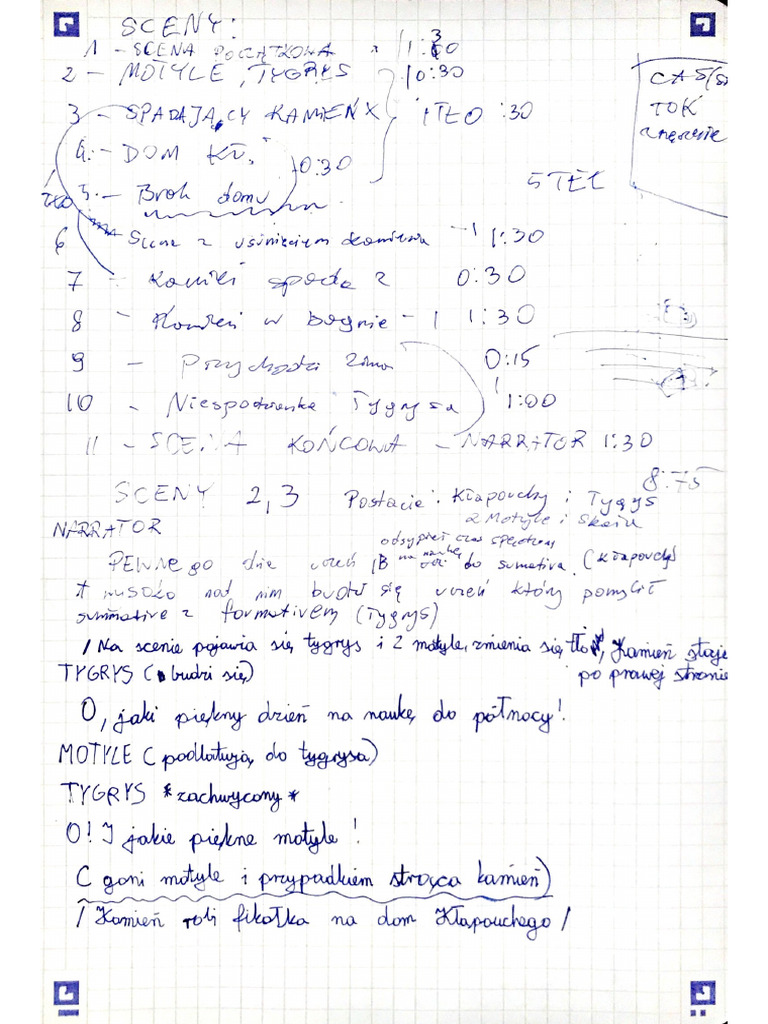 SCENY:
1 - SCENA POCZĄTKOWA
2 - MOTYLE, TYGRYS 0:30
3 - SPADAJĄCY KAMIEŃ 1 TŁO :30
CAS
TOK
4. - DOM KŁ. 0:30
5 TEŁ
5. - Brak domu
TŁO
6 - Scena z usunięciem kamienia - 1 1:30
7 - Kamień spada 2 0:30
8 - Kamień w bagnie - 1 1:30
9 - Przychodzi Zima 0:15
10 - Niespodzianka Tygrysa 1:00
11 - SCENA KOŃCOWA - NARRATOR 1:30
8:75
SCENY 2,3 Postacie: Kłapouchy i Tygrys
2 Motyle i Skała
NARRATOR
odsypiał czas spędzony
PEWNEGO dnia uczeń IB na naukę do sumativa. (Kłapouchy)
wysoko nad nim budzi się uczeń który pomylił
summative z formativem (Tygrys)
/Na scenie pojawia się tygrys i 2 motyle, zmienia się tło, Kamień staje
po prawej stronie
TYGRYS (budzi się)
O, jaki piękny dzień na naukę do północy!
MOTYLE (podlatują do tygrysa)
TYGRYS *zachwycony*
O! I jakie piękne motyle!
(goni motyle i przypadkiem strąca kamień)
/Kamień robi fikołka na dom Kłapouchego/